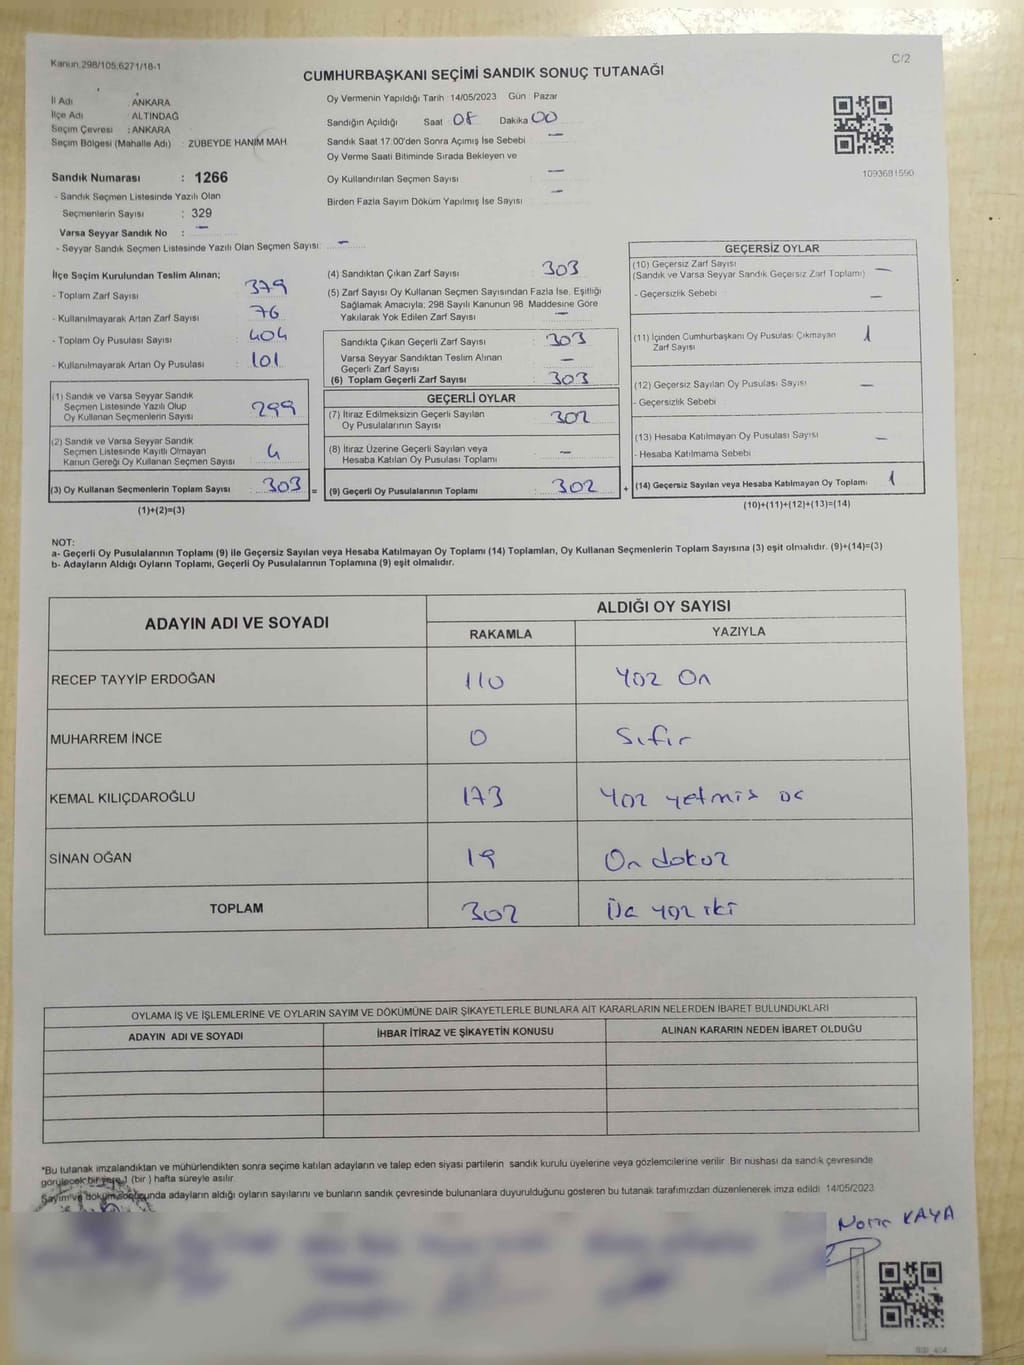 Kanun.298/105;6271/18-1
C/2
CUMHURBAŞKANI SEÇİMİ SANDIK SONUÇ TUTANAĞI
İl Adı : ANKARA
İlçe Adı : ALTINDAĞ
Seçim Çevresi : ANKARA
Seçim Bölgesi (Mahalle Adı) : ZÜBEYDE HANIM MAH
Sandık Numarası : 1266
- Sandık Seçmen Listesinde Yazılı Olan
Seçmenlerin Sayısı : 329
Varsa Seyyar Sandık No : —
- Seyyar Sandık Seçmen Listesinde Yazılı Olan Seçmen Sayısı: —
Oy Vermenin Yapıldığı Tarih : 14/05/2023 Gün : Pazar
Sandığın Açıldığı Saat : 08 Dakika : 00
Sandık Saat 17:00'den Sonra Açımış İse Sebebi : —
Oy Verme Saati Bitiminde Sırada Bekleyen ve
Oy Kullandırılan Seçmen Sayısı : —
Birden Fazla Sayım Döküm Yapılmış İse Sayısı : —
1093681590
İlçe Seçim Kurulundan Teslim Alınan;
- Toplam Zarf Sayısı : 379
- Kullanılmayarak Artan Zarf Sayısı : 76
- Toplam Oy Pusulası Sayısı : 404
- Kullanılmayarak Artan Oy Pusulası : 101
(1) Sandık ve Varsa Seyyar Sandık
Seçmen Listesinde Yazılı Olup
Oy Kullanan Seçmenlerin Sayısı : 299
(2) Sandık ve Varsa Seyyar Sandık
Seçmen Listesinde Kayıtlı Olmayan
Kanun Gereği Oy Kullanan Seçmen Sayısı : 4
(3) Oy Kullanan Seçmenlerin Toplam Sayısı : 303 =
(1)+(2)=(3)
(4) Sandıktan Çıkan Zarf Sayısı : 303
(5) Zarf Sayısı Oy Kullanan Seçmen Sayısından Fazla İse, Eşitliği
Sağlamak Amacıyla; 298 Sayılı Kanunun 98. Maddesine Göre
Yakılarak Yok Edilen Zarf Sayısı : —
Sandıkta Çıkan Geçerli Zarf Sayısı : 303
Varsa Seyyar Sandıktan Teslim Alınan
Geçerli Zarf Sayısı : —
(6) Toplam Geçerli Zarf Sayısı : 303
GEÇERLİ OYLAR
(7) İtiraz Edilmeksizin Geçerli Sayılan
Oy Pusulalarının Sayısı : 302
(8) İtiraz Üzerine Geçerli Sayılan veya
Hesaba Katılan Oy Pusulası Toplamı : —
(9) Geçerli Oy Pusulalarının Toplamı : 302 +
GEÇERSİZ OYLAR
(10) Geçersiz Zarf Sayısı
(Sandık ve Varsa Seyyar Sandık Geçersiz Zarf Toplamı) : —
- Geçersizlik Sebebi : —
(11) İçinden Cumhurbaşkanı Oy Pusulası Çıkmayan
Zarf Sayısı : 1
(12) Geçersiz Sayılan Oy Pusulası Sayısı : —
- Geçersizlik Sebebi
(13) Hesaba Katılmayan Oy Pusulası Sayısı : —
- Hesaba Katılmama Sebebi
(14) Geçersiz Sayılan veya Hesaba Katılmayan Oy Toplamı : 1
(10)+(11)+(12)+(13)=(14)
NOT:
a- Geçerli Oy Pusulalarının Toplamı (9) ile Geçersiz Sayılan veya Hesaba Katılmayan Oy Toplamı (14) Toplamları, Oy Kullanan Seçmenlerin Toplam Sayısına (3) eşit olmalıdır. (9)+(14)=(3)
b- Adayların Aldığı Oyların Toplamı, Geçerli Oy Pusulalarının Toplamına (9) eşit olmalıdır.
ADAYIN ADI VE SOYADI
ALDIĞI OY SAYISI
RAKAMLA YAZIYLA
RECEP TAYYİP ERDOĞAN 110 Yüz On
MUHARREM İNCE 0 Sıfır
KEMAL KILIÇDAROĞLU 173 Yüz yetmiş üç
SİNAN OĞAN 19 On dokuz
TOPLAM 302 Üç yüz iki
OYLAMA İŞ VE İŞLEMLERİNE VE OYLARIN SAYIM VE DÖKÜMÜNE DAİR ŞİKAYETLERLE BUNLARA AİT KARARLARIN NELERDEN İBARET BULUNDUKLARI
ADAYIN ADI VE SOYADI İHBAR İTİRAZ VE ŞİKAYETİN KONUSU ALINAN KARARIN NEDEN İBARET OLDUĞU
*Bu tutanak imzalandıktan ve mühürlendikten sonra seçime katılan adayların ve talep eden siyasi partilerin sandık kurulu üyelerine veya gözlemcilerine verilir. Bir nüshası da sandık çevresinde
görülecek bir yere 1 (bir ) hafta süreyle asılır.
Sayım ve döküm sonucunda adayların aldığı oyların sayılarını ve bunların sandık çevresinde bulunanlara duyurulduğunu gösteren bu tutanak tarafımızdan düzenlenerek imza edildi. 14/05/2023
KAYA